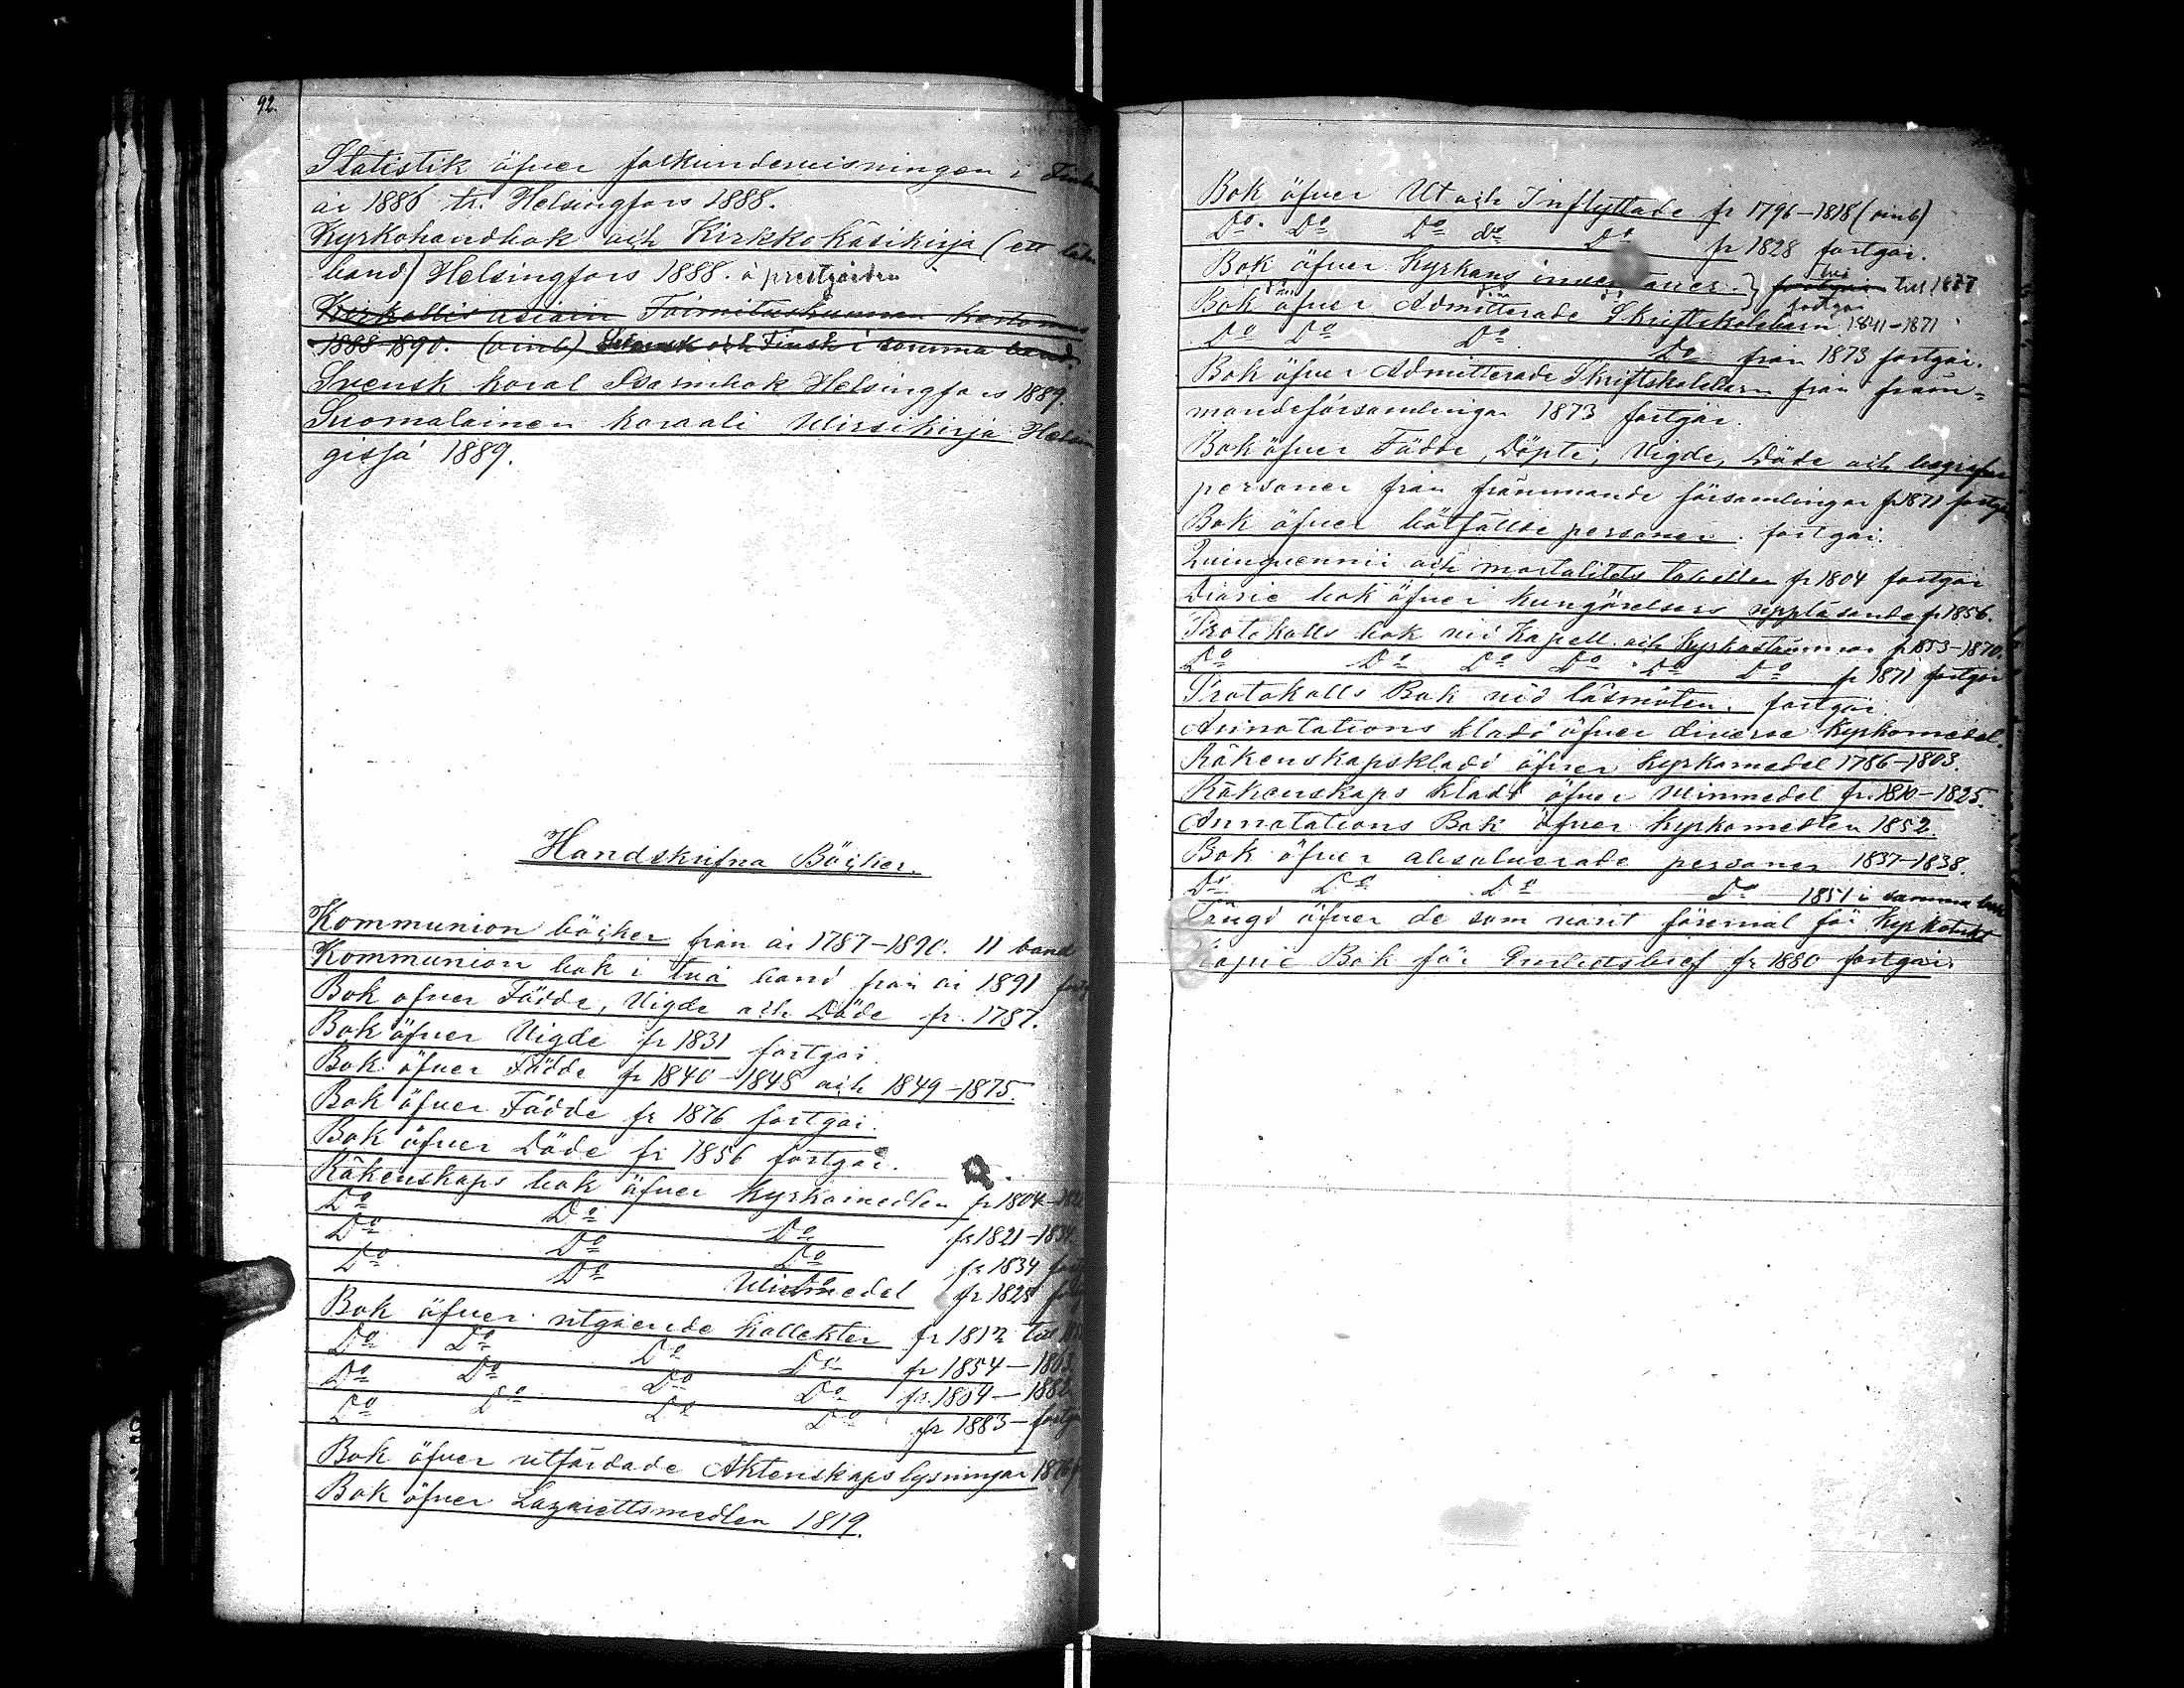 92.
Statistik öfver folkundervisningen i
år 1886 tr. Helsingfors 1888.
Kyrkohandbok och Kirkko Käsikirja (ett
band) Helsingfors 1888. å prestgården
Kirkollis asiain Toimituskunnan
1888-1890. (oinb) Svensk och Finsk i samma band.
Svensk koral Psalmbok Helsingfors 1889.
Suomalainen koraali Virsikirja Helsin
gissä 1889.
Handskrifna Böcker.
Kommunion böcker från år 1787-1890. 11 band
Kommunion bok i två band från år 1891
Bok öfver Födde, Vigde och Döde fr. 1787.
Bok öfver Vigde fr 1831 fortgår.
Bok öfver Födde fr 1840-1848 och 1849-1875.
Bok öfver Födde fr 1876 fortgår.
Bok öfver Döde fr 1856 fortgår.
Räkenskaps bok öfver Kyrkomedlen fr 1804-
Do Do Do fr 1821-1834.
Do Do Do fr 1834
Do Do Vinmedel fr 1825
Bok öfver utgående kollekter fr 1812 till
Do Do Do Do fr 1854-1863
Do Do Do Do fr. 1864-1882
Do Do Do Do fr 1883- fortgår
Bok öfver utfärdade Äktenskapslysningar 1876
Bok öfver Lazarettsmedlen 1819.
Bok öfver Ut och Inflyttade fr 1796-1818 (oinb)
Do. Do Do do Do fr 1828 fortgår.
Bok öfver Kyrkans inventarier. fortgår till 1877
fortgår
Bok öfver Admitterade Skriftskolebarn 1841-1871
Do Do Do Do från 1873 fortgår.
Bok öfver Admitterade Skriftskolebarn från från=
mandeförsamlingar 1873 fortgår.
Bok öfver Födde, Döpte, Vigde, Döde och begrafne
personer från främmande församlingar fr 1871 fortgår
Bok öfver bötfällde personer. fortgår.
Quinquennii och mortalitets tabeller fr 1804 fortgår
Diarie bok öfver kungörelsers uppläsande fr 1856.
Protokolls bok vid Kapell och Kyrkostämmor fr 1853-1870.
Do Do Do Do Do Do fr 1871 fortgår
Protokolls Bok vid läsmöten. fortgår.
Annotations kladd öfver diverse Kyrkomedel.
Räkenskapskladd öfver Kyrkomedel 1786-1803.
Räkenskaps kladd öfver Vinmedel fr. 1810-1825.
Annotations Bok öfver Kyrkomedlen 1852.
Bok öfver absolverade personer 1837-1838.
Do Do Do Do 1851 i samma bok
öfver de som varit föremål för
Kopie Bok för Embetsbref fr 1880 fortgår.